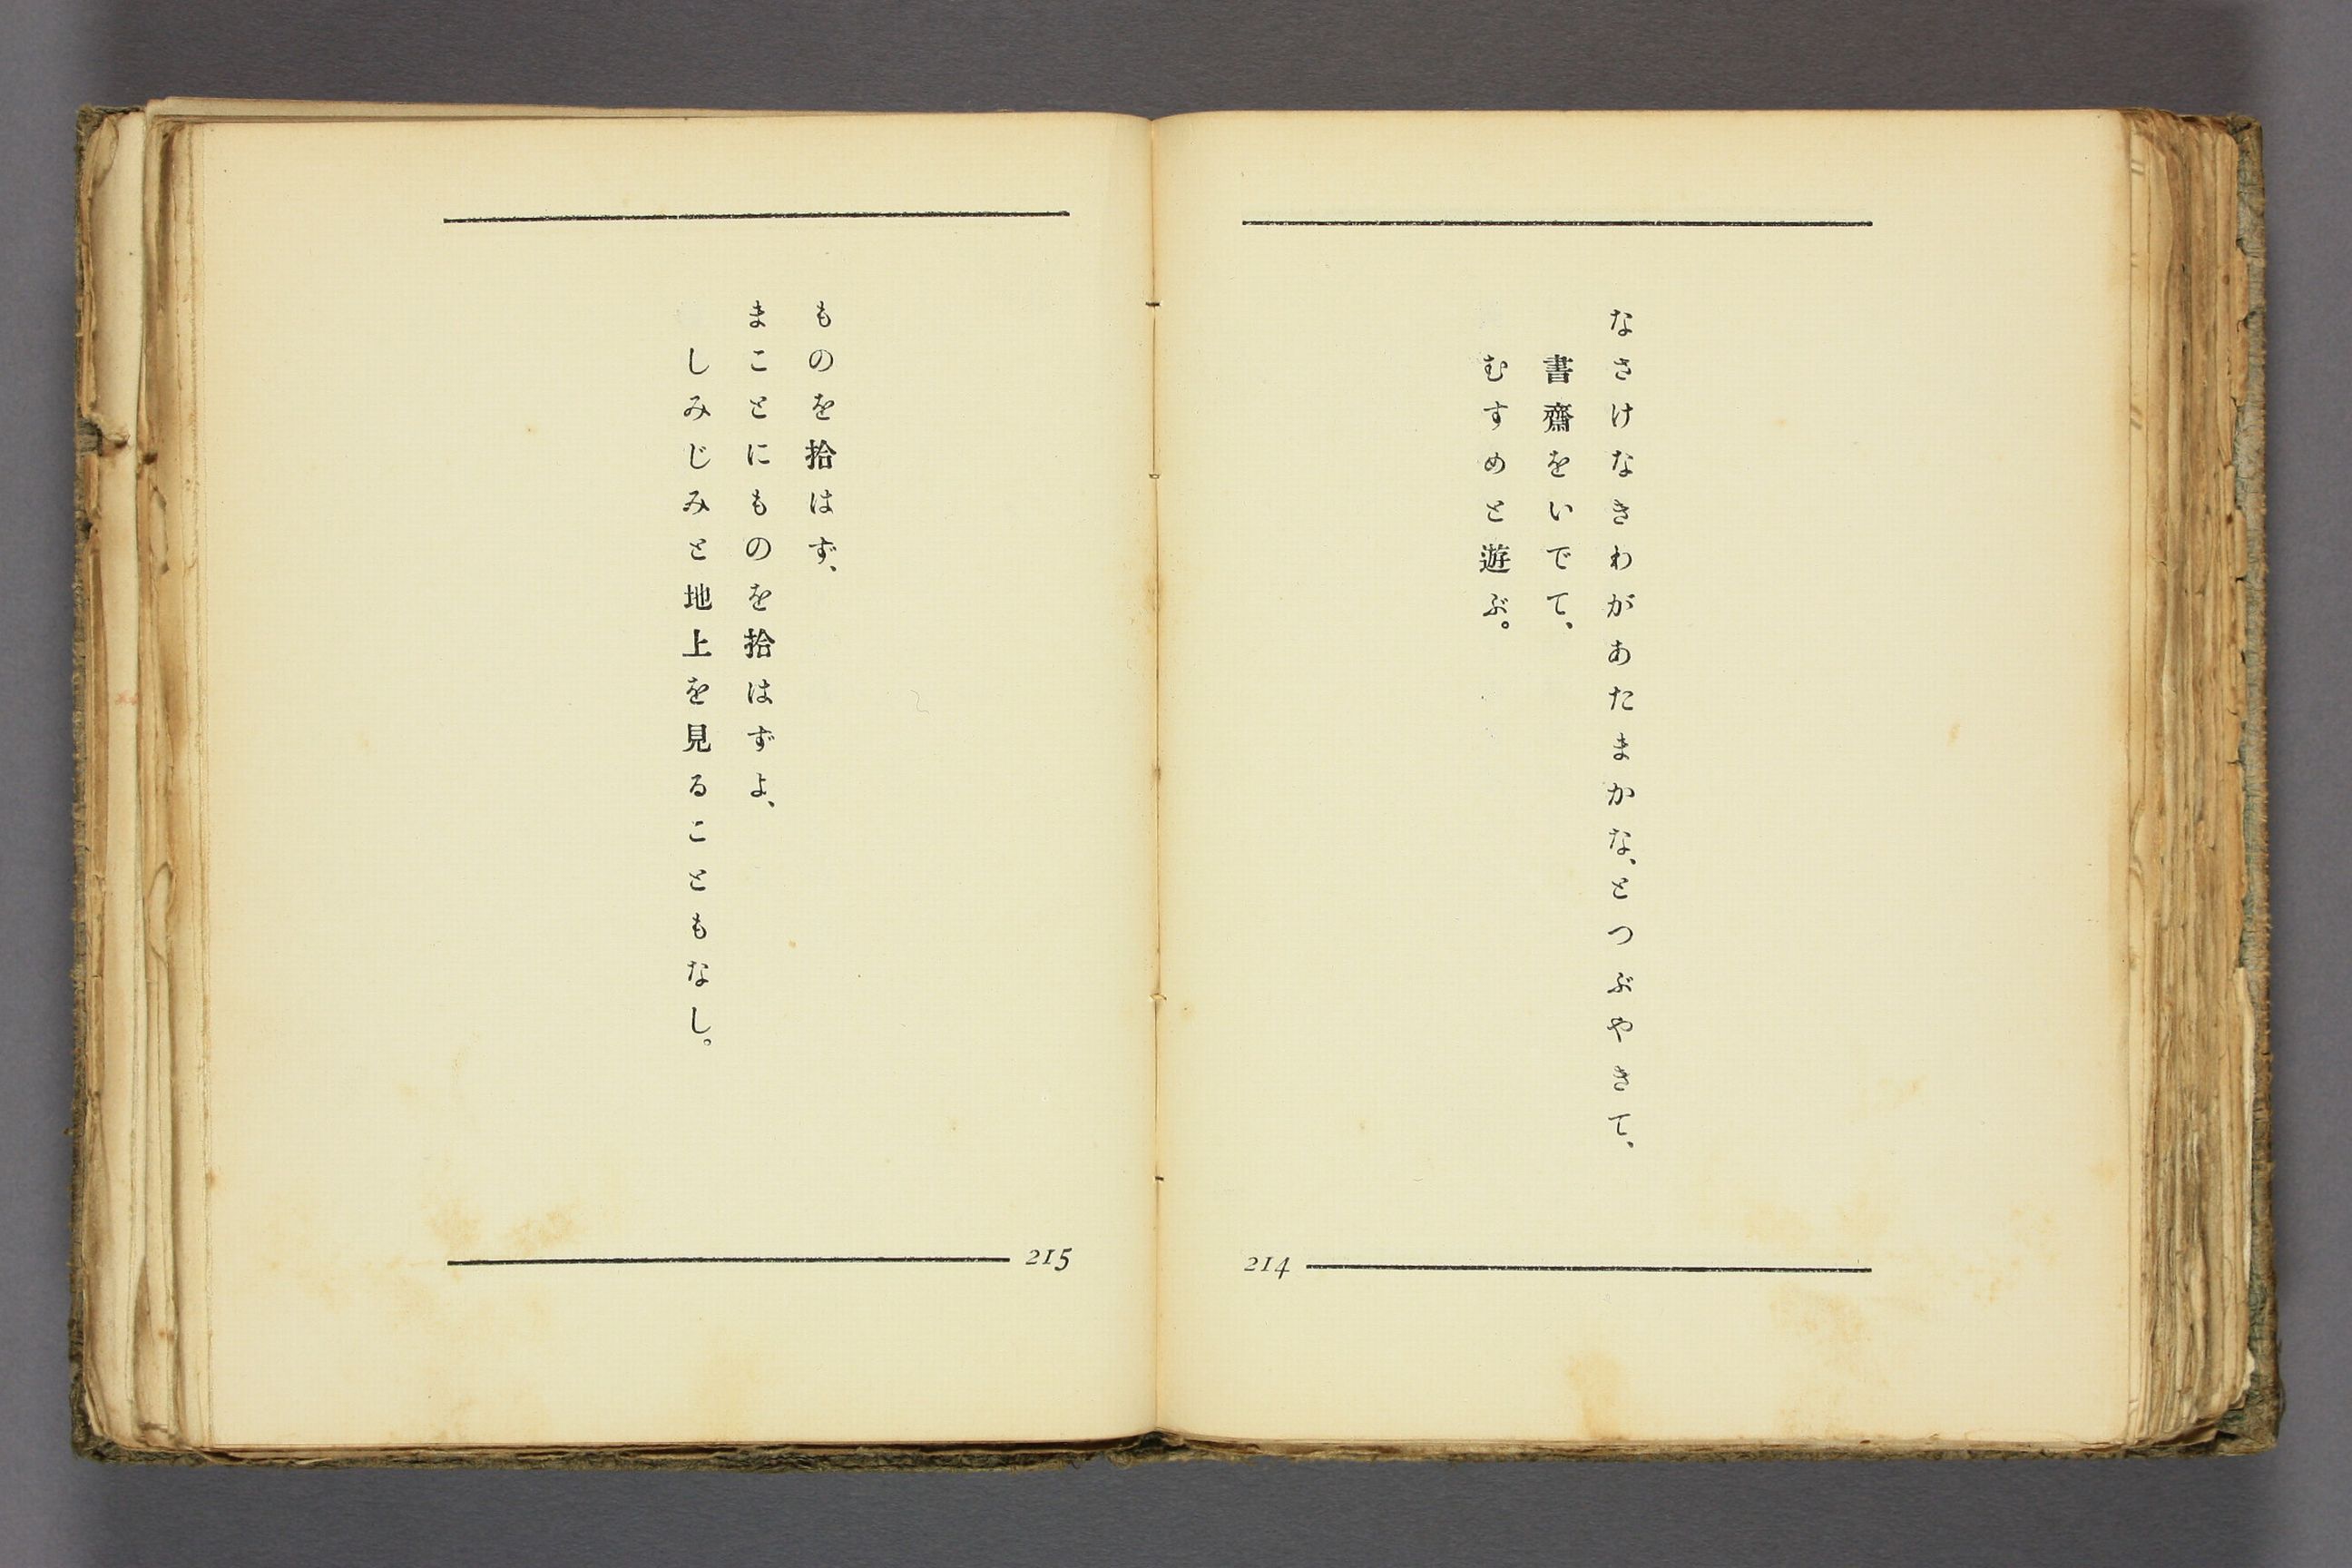 なさけなきわがあたまかな、とつぶやきて、
書齋をいでて、
むすめと遊ぶ。
214
ものを拾はず、
まことにものを拾はずよ、
しみじみと地上を見ることもなし。
215